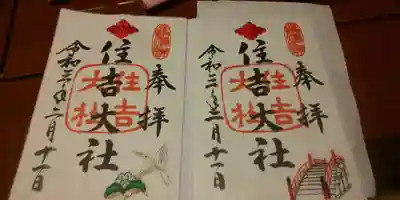 奉拝
住吉大社
住吉大社
令和三年二月十一日
奉拝
住吉大社
住吉大社
令和三年二月十一日